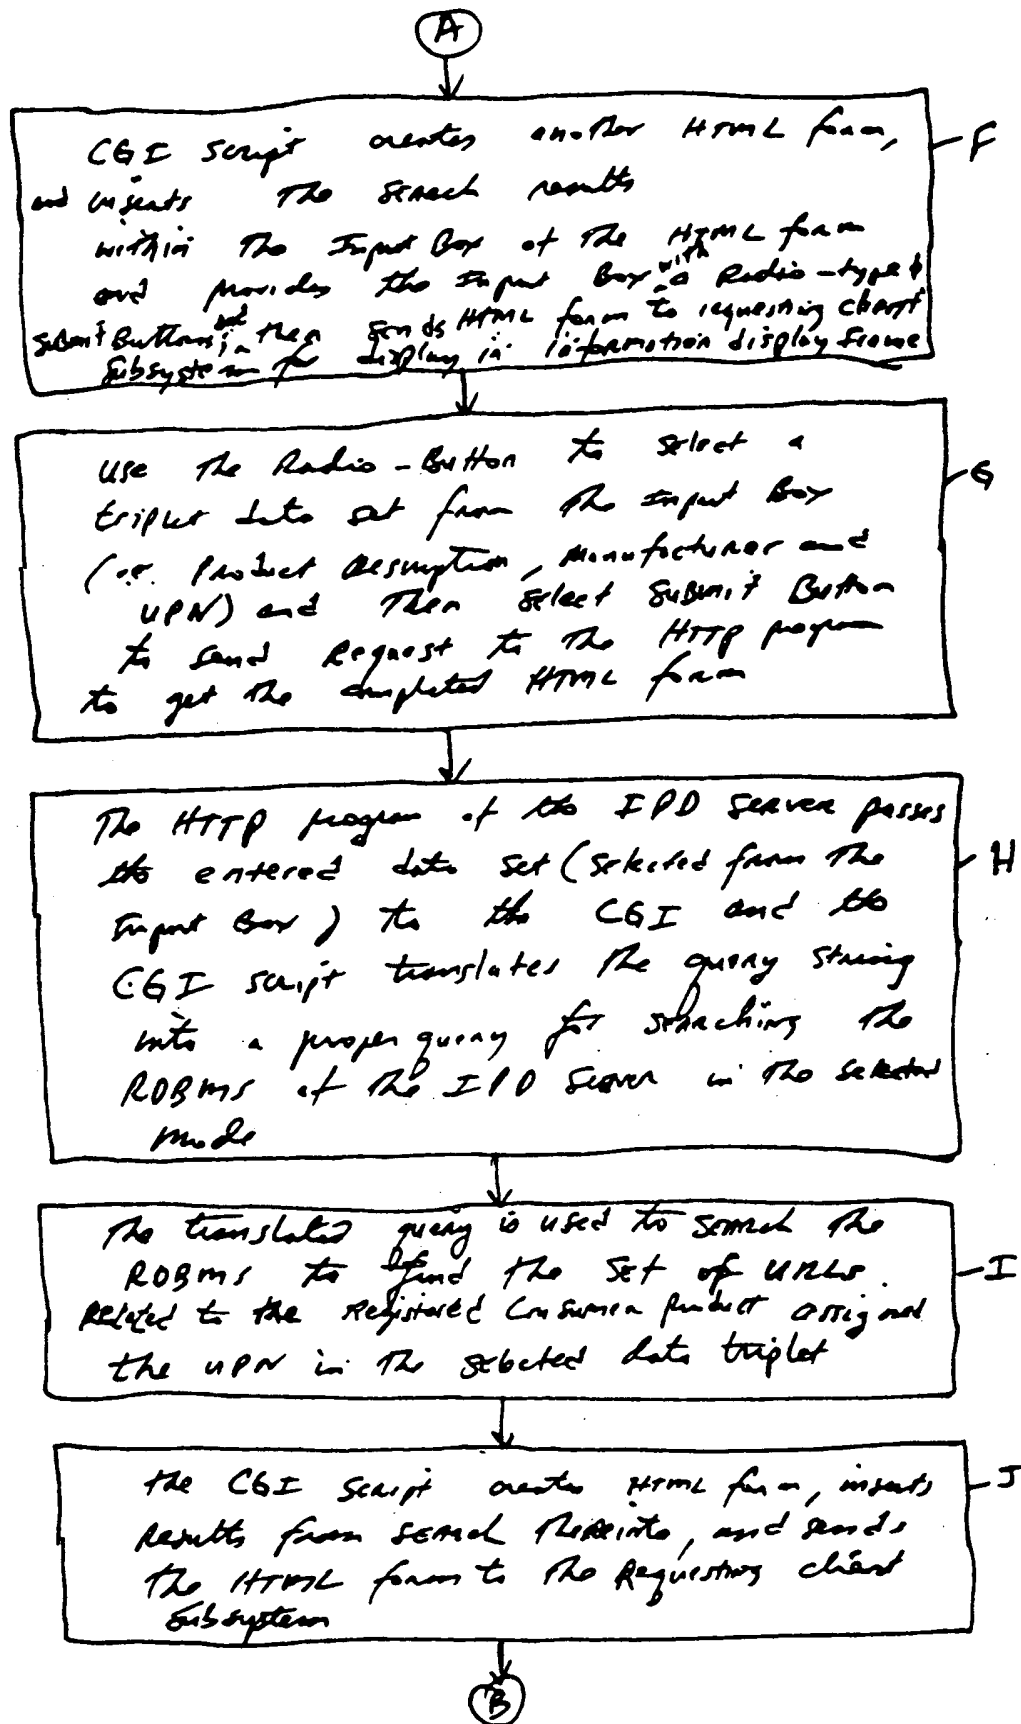 A
CGI Script creates another HTML form, F
and inserts the search results
within the Input Box of the HTML form
and provides the Input Box with a Radio-type &
submit Buttons, and then sends HTML form to requesting client
subsystem for display in information display frame
Use the Radio-Button to select a G
triplet data set from the Input Box
(i.e. Product Description, Manufacturer and
UPN) and then select Submit Button
to send Request to the HTTP program
to get the completed HTML form
The HTTP program of the IPD Server passes
the entered data set (selected from the H
Input Box) to the CGI and the
CGI script translates the query string
into a proper query for searching the
RDBMS of the IPD Server in the selected
mode
The translated query is used to search the
RDBMS to find the set of URLs I
Related to the registered Consumer Product assigned
the UPN in the selected data triplet
the CGI Script creates HTML form, inserts J
Results from search thereinto, and sends
the HTML form to the Requesting client
subsystem
B